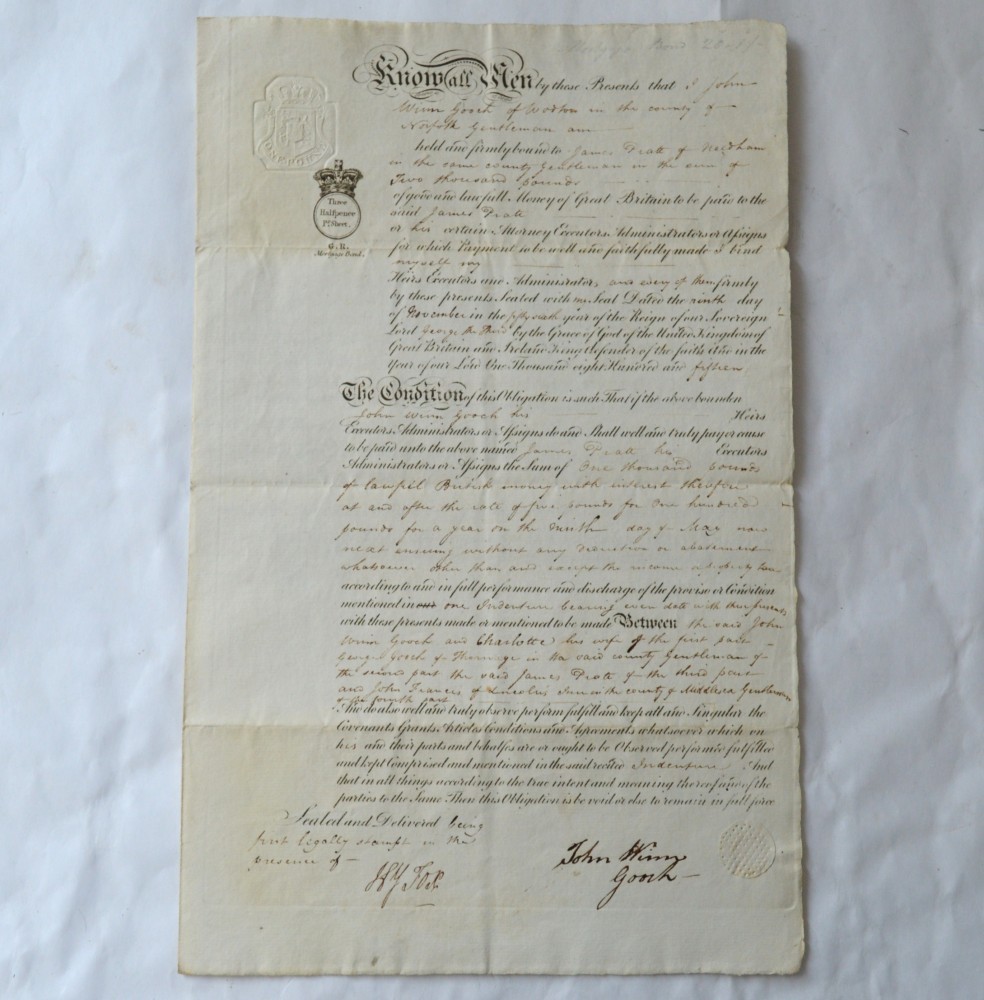 Mortgage Bond
Know all Men by these Presents that I John
Winn Gooch of Worton in the county of
Norfolk Gentleman am
held and firmly bound to James Pratt of Needham
in the same county Gentleman in the sum of
Two thousand pounds
of good and lawfull Money of Great Britain to be paid to the
said James Pratt
or his certain Attorney Executors Administrators or Assigns
for which Payment to be well and faithfully made I bind
myself my
Heirs Executors and Administrators and every of them firmly
by these presents Sealed with my Seal Dated the ninth day
of November in the fifty sixth year of the Reign of our Sovereign
Lord George the Third by the Grace of God of the United Kingdom of
Great Britain and Ireland King defender of the faith And in the
Year of our Lord One Thousand eight Hundred and fifteen
Three
Halfpence
Pr. Sheet.
G.R.
Mortgage Bond.
The Condition of this Obligation is such That if the above bounden
John Winn Gooch his Heirs
Executors Administrators or Assigns do and Shall well and truly pay or cause
to be paid unto the above named James Pratt his Executors
Administrators or Assigns the Sum of One thousand pounds
of lawful British money with interest therefor
at and after the rate of five pounds for One hundred
pounds for a year on the ninth day of May now
next ensuing without any deduction or abatement
whatsoever other than and except the income or property tax
according to and in full performance and discharge of the proviso or Condition
mentioned in one Indenture bearing even date with these presents
with these presents made or mentioned to be made Between the said John
Winn Gooch and Charlotte his wife of the first part
George Gooch of in the said county Gentleman of
the second part the said James Pratt of the third part
and John Francis of Lincolns Inn in the county of Middlesex Gentleman
of the fourth part
And do also well and truly observe perform fulfill and keep all and Singular the
Covenants Grants Articles Conditions and Agreements whatsoever which on
his and their parts and behalfes are or ought to be Observed performed fulfilled
and kept Comprised and mentioned in the said recited Indenture And
that in all things according to the true intent and meaning thereof and of the
parties to the Same Then this Obligation is be void or else to remain in full force
Sealed and Delivered being
first legally stampt in the
presence of
Wy Fox
John Winn
Gooch